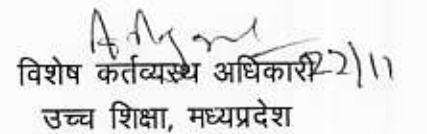 22/11
विशेष कर्तव्यस्थ अधिकारी
उच्च शिक्षा, मध्यप्रदेश